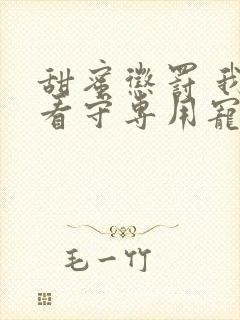 甜蜜懲罰 我
看守專用寵
毛一竹